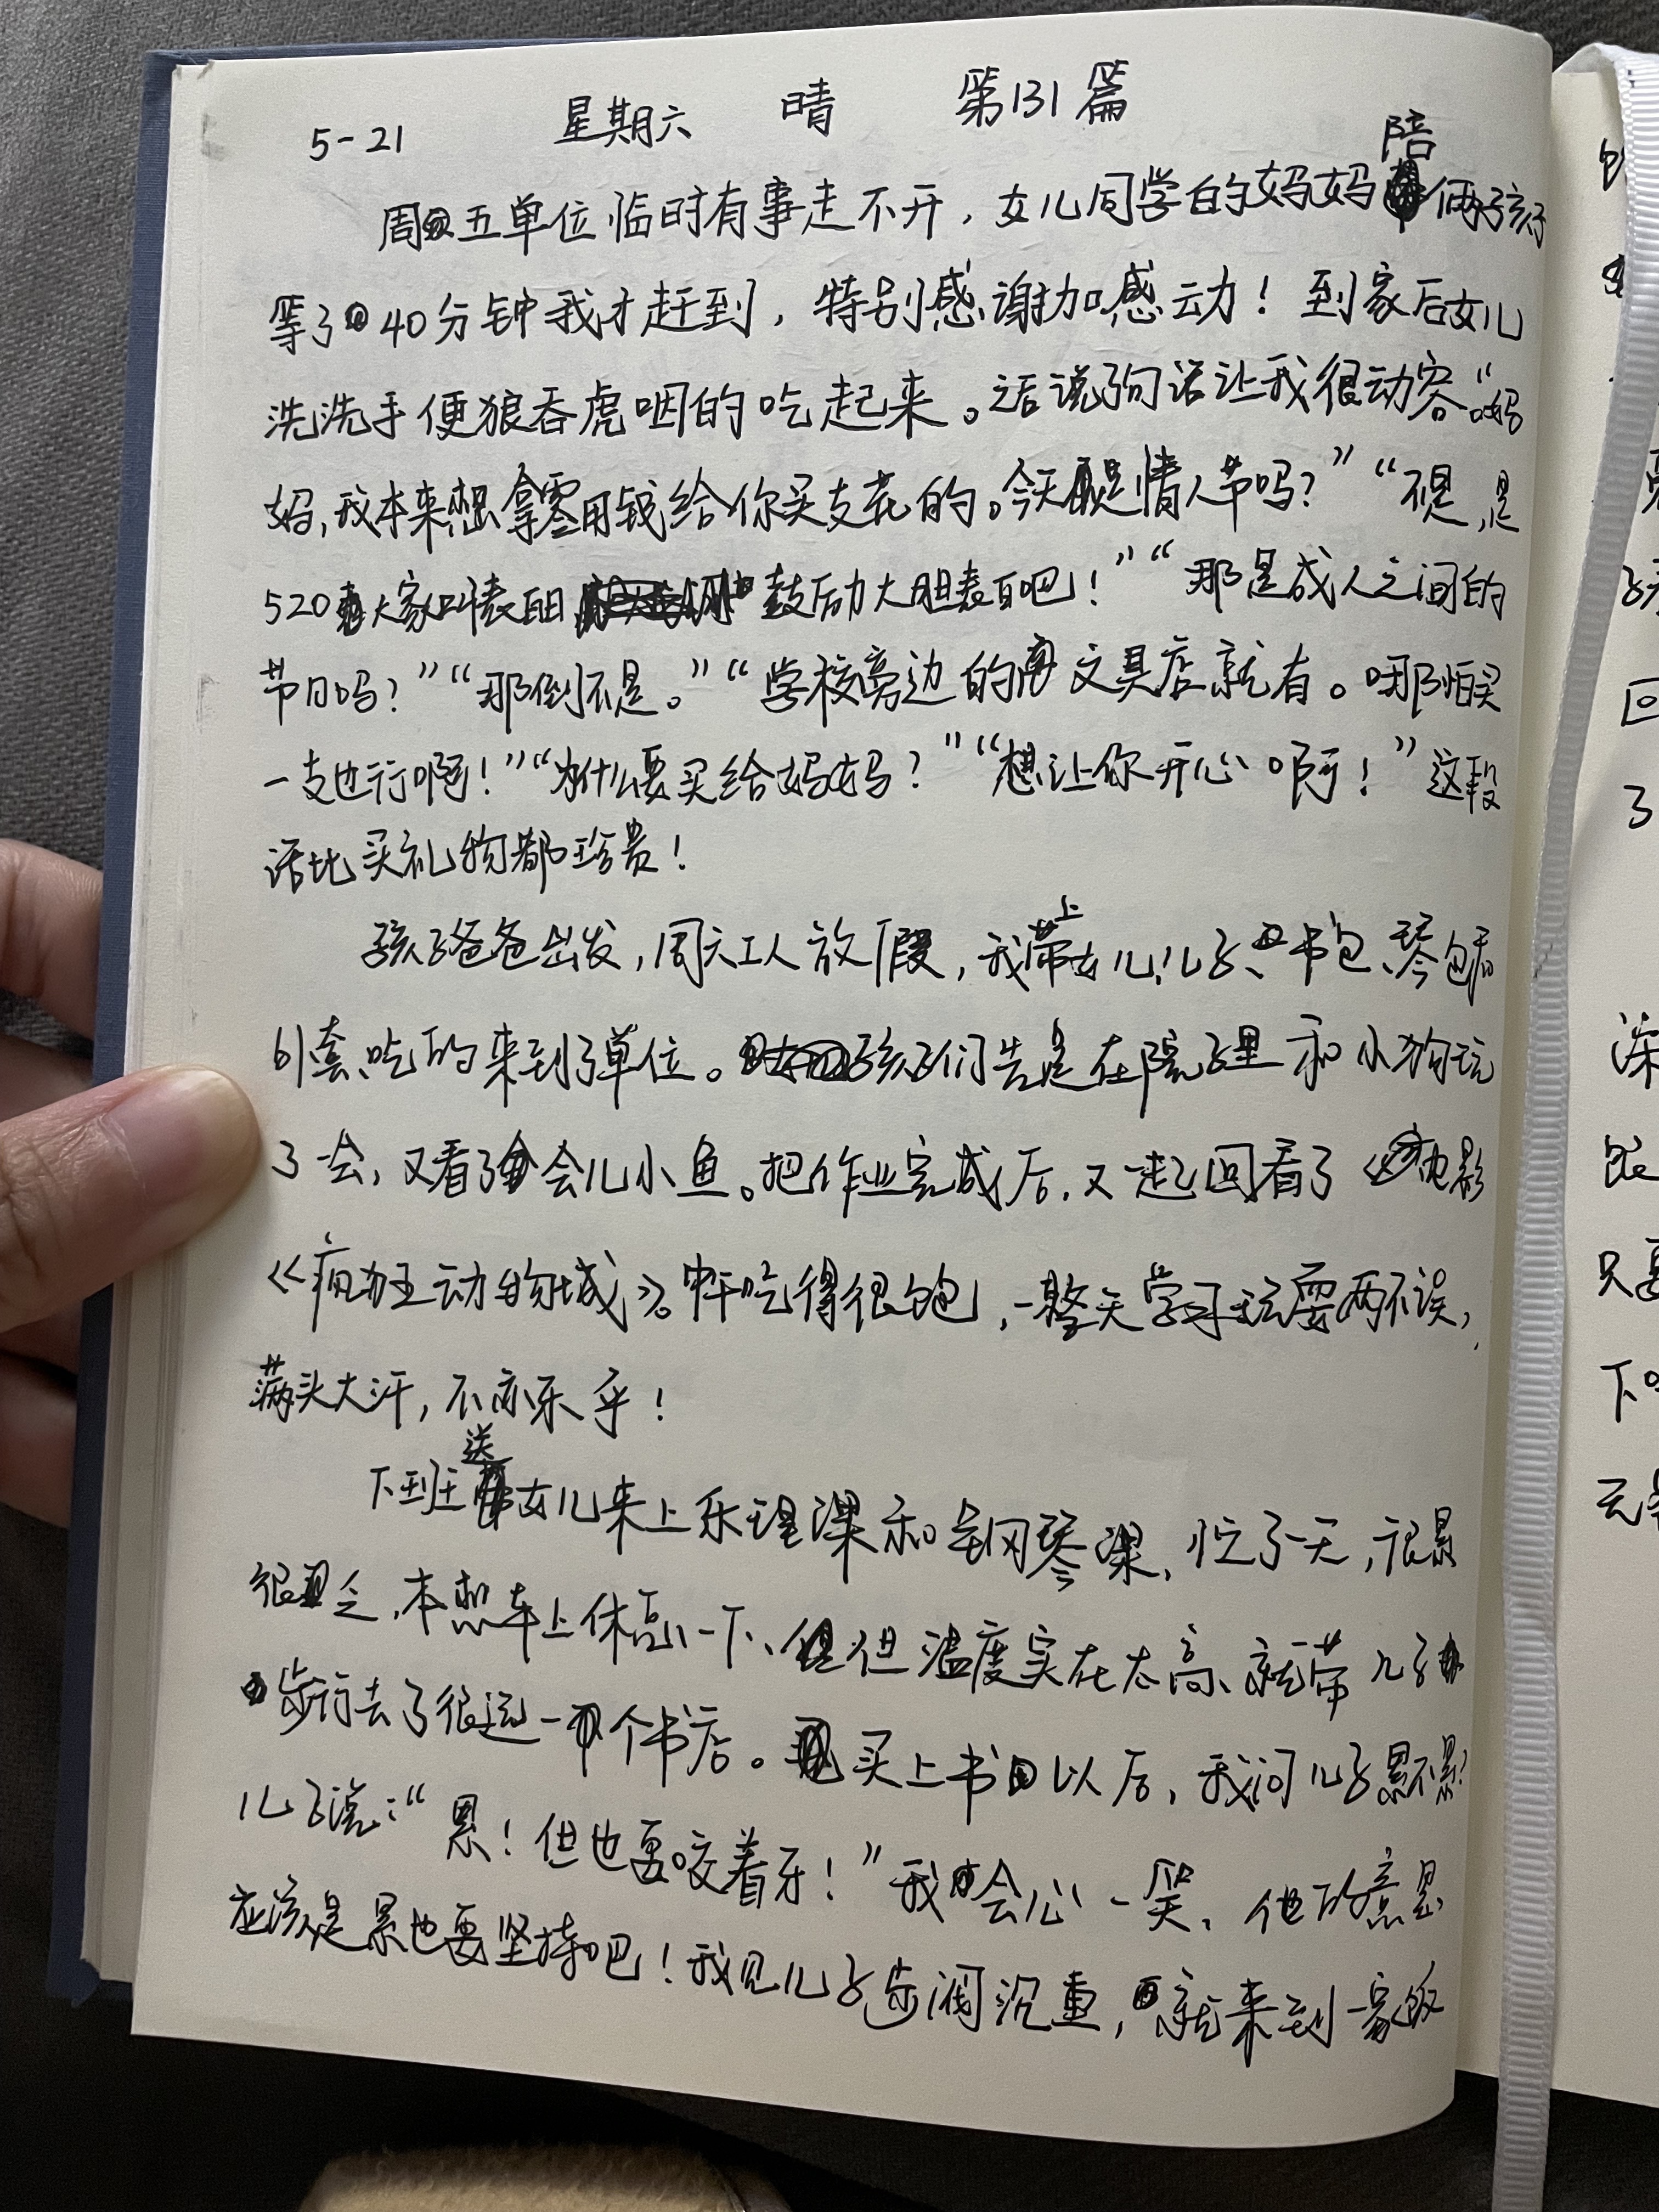 5-21 星期六 晴 第131篇
周五单位临时有事走不开，女儿同学的妈妈陪俩孩子
等了40分钟我才赶到，特别感谢加感动！到家后女儿
洗洗手便狼吞虎咽的吃起来。话说到句话让我很动容“妈
妈，我本来想拿零用钱给你买支花的。今天是情人节吗？”“不是，是
520大家叫表白 鼓励大胆表白吧！”“那是成人之间的
节日吗？”“那倒不是。”“学校旁边的文具店就有。哪怕买
一支也行啊！”“为什么要买给妈妈？”“想让你开心啊！”这段
话比买礼物都珍贵！
孩子爸爸出发，周六工人放假，我带上女儿、儿子、书包、琴包和
引套、吃的来到了单位。孩子们先是在院子里和小狗玩
了一会，又看了会儿小鱼。把作业完成后，又一起回看了电影
《疯狂动物城》。中午吃得很饱，一整天学习玩耍两不误，
满头大汗，不亦乐乎！
下班送女儿来上乐理课和钢琴课，忙了一天，很累
很乏，本想车上休息一下、但温度实在太高、就带儿子
步行去了很远一个书店。买上书以后，我问儿子累不累？
儿子说：“累！但也要咬着牙！”我会心一笑、他的意思
应该是累也要坚持吧！我见儿子步阀沉重，就来到一家饭